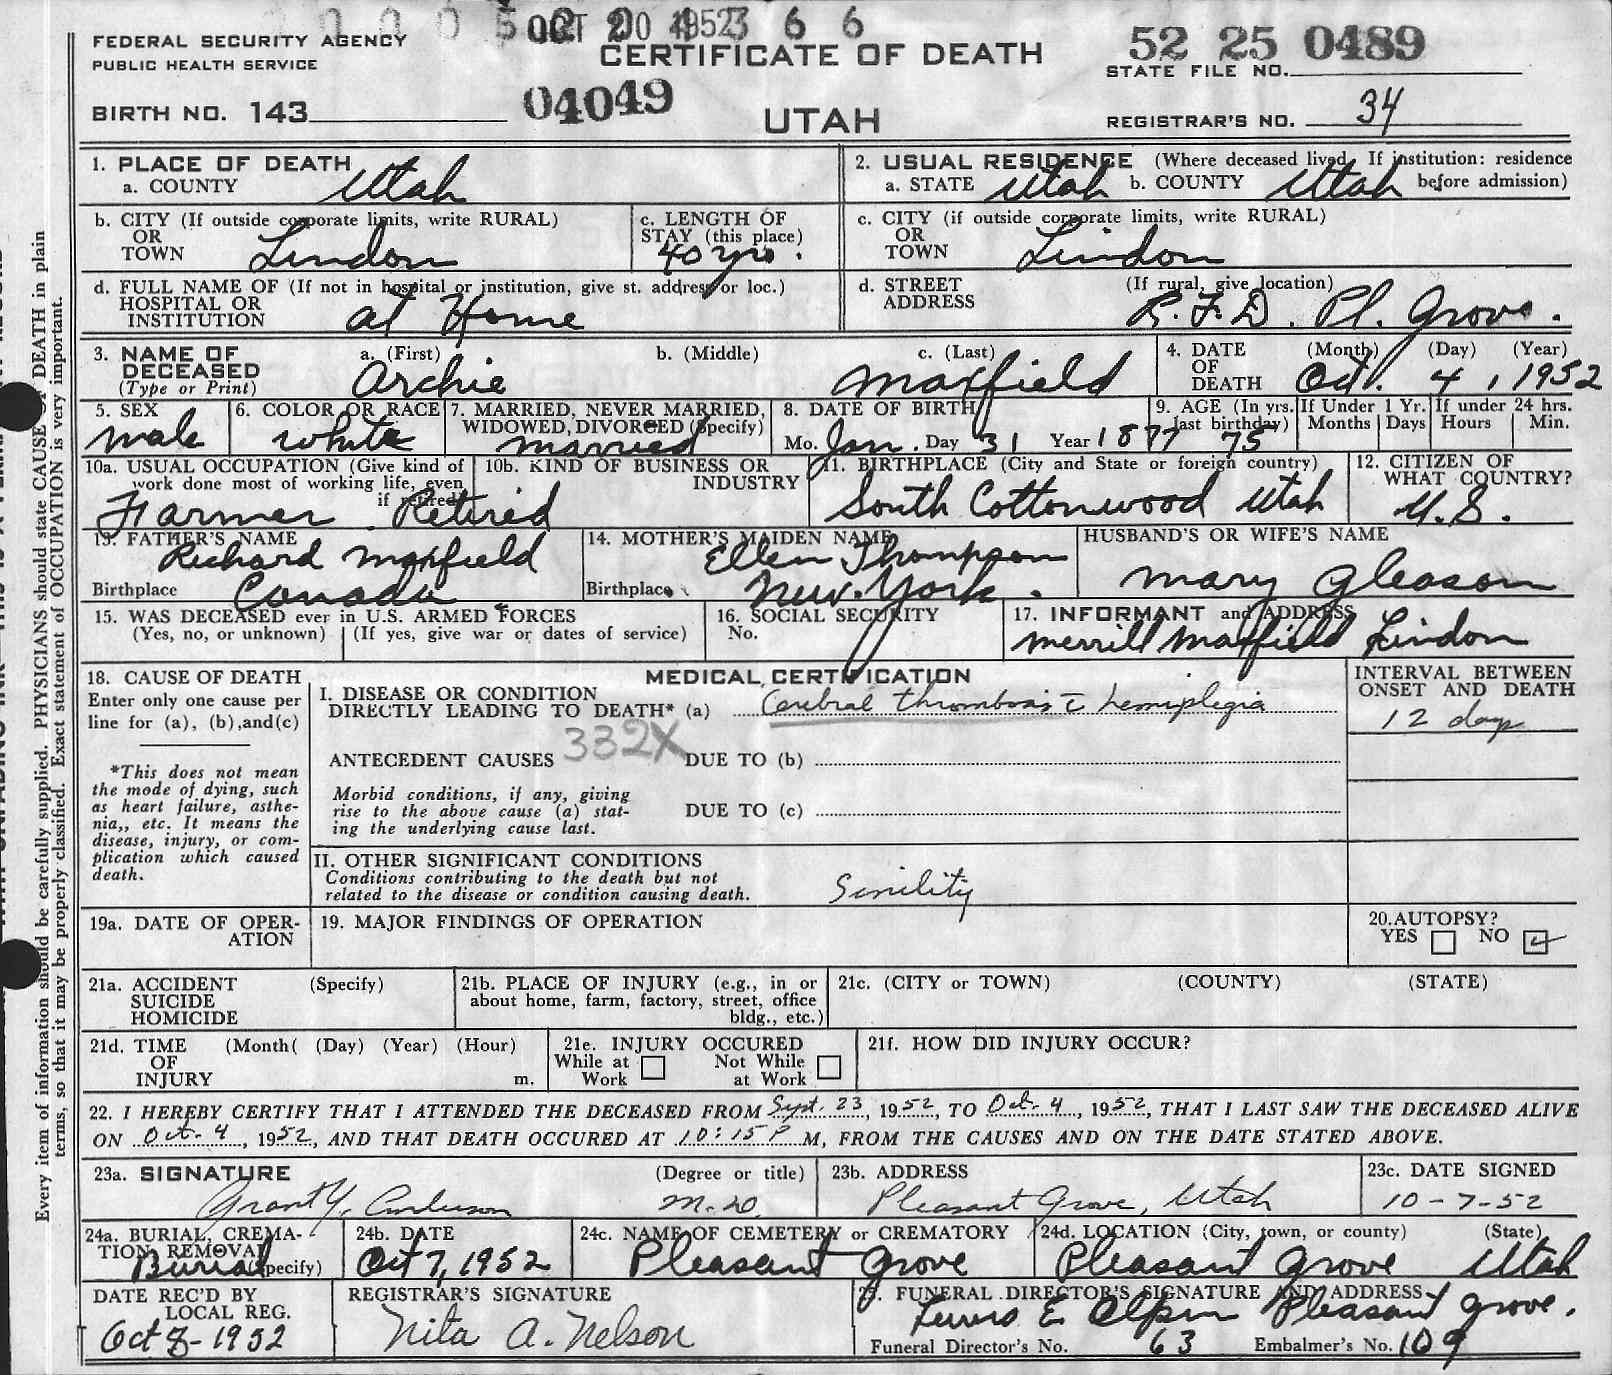 OCT 20 1952
FEDERAL SECURITY AGENCY
PUBLIC HEALTH SERVICE
CERTIFICATE OF DEATH
52 25 0489
STATE FILE NO.
BIRTH NO. 143
04049
UTAH
REGISTRAR'S NO. 34
1. PLACE OF DEATH
a. COUNTY Utah
2. USUAL RESIDENCE (Where deceased lived. If institution: residence before admission)
a. STATE Utah b. COUNTY Utah
b. CITY (If outside corporate limits, write RURAL)
OR
TOWN Lindon
c. LENGTH OF
STAY (this place)
40 yrs.
c. CITY (if outside corporate limits, write RURAL)
OR
TOWN Lindon
d. FULL NAME OF (If not in hospital or institution, give st. address or loc.)
HOSPITAL OR
INSTITUTION at Home
d. STREET
ADDRESS
(If rural, give location)
R.F.D. Pl. Grove.
3. NAME OF
DECEASED
(Type or Print)
a. (First)
Archie
b. (Middle)
c. (Last)
Maxfield
4. DATE
OF
DEATH
(Month) (Day) (Year)
Oct. 4, 1952
5. SEX
male
6. COLOR OR RACE
white
7. MARRIED, NEVER MARRIED,
WIDOWED, DIVORCED (Specify)
married
8. DATE OF BIRTH
Mo. Jan. Day 31 Year 1877
9. AGE (In yrs.
last birthday)
75
If Under 1 Yr.
Months Days
If under 24 hrs.
Hours Min.
10a. USUAL OCCUPATION (Give kind of
work done most of working life, even
if retired)
Farmer Retired
10b. KIND OF BUSINESS OR
INDUSTRY
11. BIRTHPLACE (City and State or foreign country)
South Cottonwood Utah
12. CITIZEN OF
WHAT COUNTRY?
U.S.
13. FATHER'S NAME
Richard Maxfield
Birthplace Canada
14. MOTHER'S MAIDEN NAME
Ellen Thompson
Birthplace New York.
HUSBAND'S OR WIFE'S NAME
Mary Gleason
15. WAS DECEASED ever in U.S. ARMED FORCES
(Yes, no, or unknown) (If yes, give war or dates of service)
16. SOCIAL SECURITY
No.
17. INFORMANT and ADDRESS
Merrill Maxfield Lindon
18. CAUSE OF DEATH
Enter only one cause per
line for (a), (b), and (c)
*This does not mean
the mode of dying, such
as heart failure, asthe-
nia,, etc. It means the
disease, injury, or com-
plication which caused
death.
MEDICAL CERTIFICATION
I. DISEASE OR CONDITION
DIRECTLY LEADING TO DEATH* (a) Cerebral thrombosis c̄ hemiplegia
332X
ANTECEDENT CAUSES DUE TO (b)
Morbid conditions, if any, giving
rise to the above cause (a) stat-
ing the underlying cause last.
DUE TO (c)
INTERVAL BETWEEN
ONSET AND DEATH
12 days
II. OTHER SIGNIFICANT CONDITIONS
Conditions contributing to the death but not
related to the disease or condition causing death.
Senility
19a. DATE OF OPER-
ATION
19. MAJOR FINDINGS OF OPERATION
20. AUTOPSY?
YES NO
21a. ACCIDENT (Specify)
SUICIDE
HOMICIDE
21b. PLACE OF INJURY (e.g., in or
about home, farm, factory, street, office
bldg., etc.)
21c. (CITY or TOWN) (COUNTY) (STATE)
21d. TIME (Month( (Day) (Year) (Hour)
OF
INJURY m.
21e. INJURY OCCURED
While at Work
Not While at Work
21f. HOW DID INJURY OCCUR?
22. I HEREBY CERTIFY THAT I ATTENDED THE DECEASED FROM Sept. 23, 1952, TO Oct. 4, 1952, THAT I LAST SAW THE DECEASED ALIVE
ON Oct. 4, 1952, AND THAT DEATH OCCURED AT 10:15 P M, FROM THE CAUSES AND ON THE DATE STATED ABOVE.
23a. SIGNATURE (Degree or title)
Grant Y. Anderson M.D.
23b. ADDRESS
Pleasant Grove, Utah
23c. DATE SIGNED
10-7-52
24a. BURIAL, CREMA-
TION REMOVAL
(Specify)
Burial
24b. DATE
Oct 7, 1952
24c. NAME OF CEMETERY or CREMATORY
Pleasant Grove
24d. LOCATION (City, town, or county) (State)
Pleasant Grove Utah
DATE REC'D BY
LOCAL REG.
Oct 8-1952
REGISTRAR'S SIGNATURE
Nita A. Nelson
25. FUNERAL DIRECTOR'S SIGNATURE AND ADDRESS
E. Olpin Pleasant Grove.
Funeral Director's No. 63 Embalmer's No. 109
Every item of information should be carefully supplied. PHYSICIANS should state CAUSE OF DEATH in plain
terms, so that it may be properly classified. Exact statement of OCCUPATION is very important.